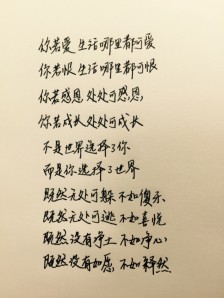 你若爱 生活哪里都可爱
你若恨 生活哪里都可恨
你若感恩 处处可感恩,
你若成长 处处可成长
不是世界选择了你
而是你选择了世界
既然无处可躲 不如傻乐、
既然无处可逃 不如喜悦
既然没有净土 不如净心;
既然没有如愿 不如释然